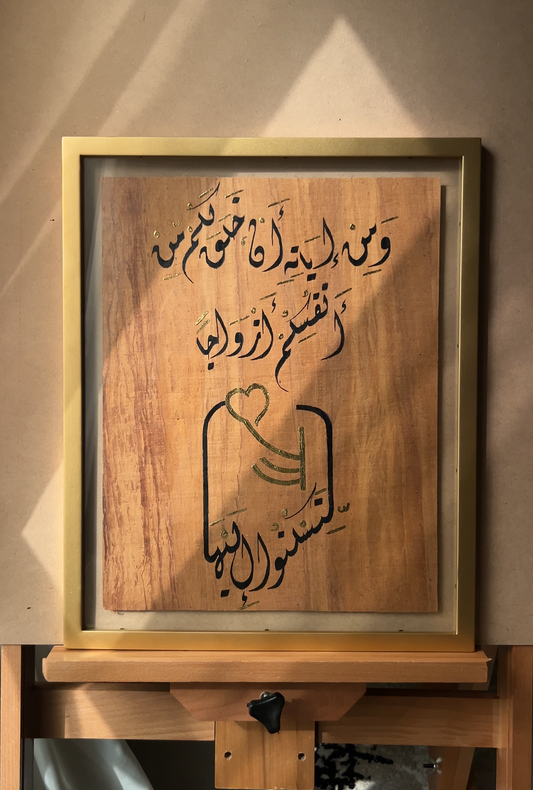 وَمِنْ اٰيَاتِهٖ أَنْ خَلَقَ لَكُمْ مِنْ
أَنْفُسِكُمْ أَزْوَاجًا
لِّتَسْكُنُوا إِلَيْهَا